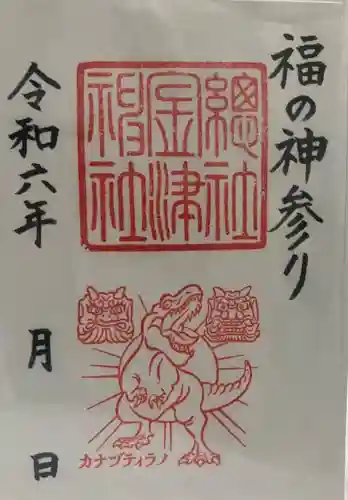 福の神参り
總社
金津
神社
令和六年
月
日
カナヅティラノ